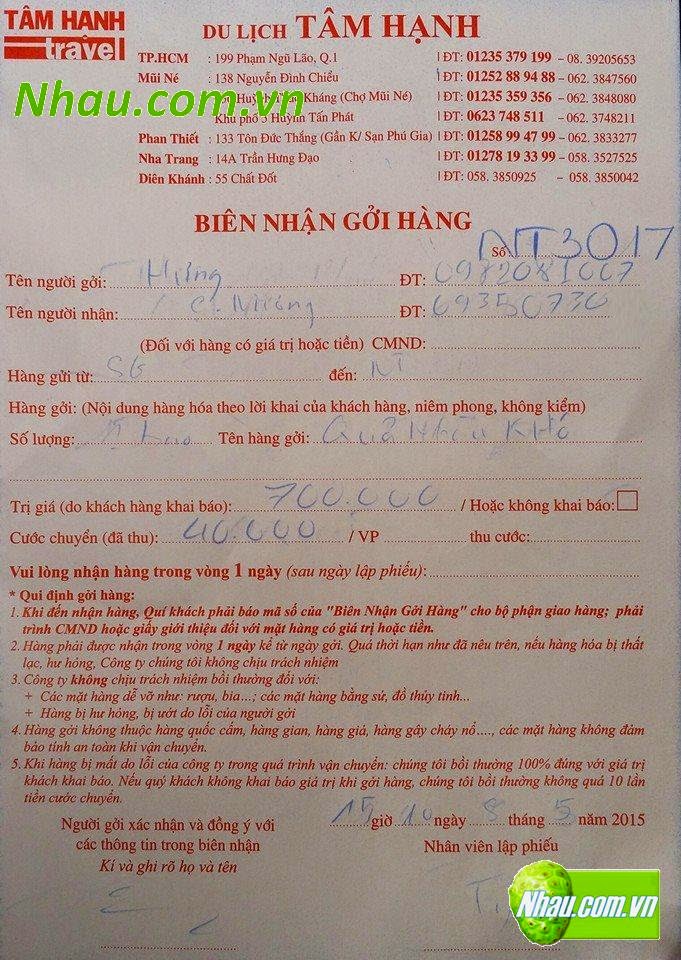 TÂM HẠNH
travel
DU LỊCH TÂM HẠNH
TP.HCM : 199 Phạm Ngũ Lão, Q.1 | ĐT: 01235 379 199 – 08. 39205653
Mũi Né : 138 Nguyễn Đình Chiểu | ĐT: 01252 88 94 88 – 062. 3847560
Nhau.com.vn
Kháng (Chợ Mũi Né) | ĐT: 01235 359 356 – 062. 3848080
Khu phố 3 Huỳnh Tấn Phát | ĐT: 0623 748 511 – 062. 3748211
Phan Thiết : 133 Tôn Đức Thắng (Gần K/ Sạn Phú Gia) | ĐT: 01258 99 47 99 – 062. 3833277
Nha Trang : 14A Trần Hưng Đạo | ĐT: 01278 19 33 99 – 058. 3527525
Diên Khánh : 55 Chất Đốt | ĐT: 058. 3850925 – 058. 3850042
BIÊN NHẬN GỞI HÀNG
Số: NT3017
Tên người gởi: Hưng ĐT: 0982081067
Tên người nhận: C. ĐT: 09350730
(Đối với hàng có giá trị hoặc tiền) CMND:
Hàng gửi từ: SG đến: NT
Hàng gởi: (Nội dung hàng hóa theo lời khai của khách hàng, niêm phong, không kiểm)
Số lượng: bao Tên hàng gởi: Quả Nhàu Khô
Trị giá (do khách hàng khai báo): 700.000 / Hoặc không khai báo:
Cước chuyển (đã thu): 40.000 / VP thu cước:
Vui lòng nhận hàng trong vòng 1 ngày (sau ngày lập phiếu):
* Qui định gởi hàng:
1. Khi đến nhận hàng, Quí khách phải báo mã số của "Biên Nhận Gởi Hàng" cho bộ phận giao hàng; phải
trình CMND hoặc giấy giới thiệu đối với mặt hàng có giá trị hoặc tiền.
2. Hàng phải được nhận trong vòng 1 ngày kể từ ngày gởi. Quá thời hạn như đã nêu trên, nếu hàng hóa bị thất
lạc, hư hỏng, Công ty chúng tôi không chịu trách nhiệm
3. Công ty không chịu trách nhiệm bồi thường đối với:
+ Các mặt hàng dễ vỡ như: rượu, bia...; các mặt hàng bằng sứ, đồ thủy tinh...
+ Hàng bị hư hỏng, bị ướt do lỗi của người gởi
4. Hàng gởi không thuộc hàng quốc cấm, hàng gian, hàng giả, hàng gây cháy nổ...., các mặt hàng không đảm
bảo tính an toàn khi vận chuyển.
5. Khi hàng bị mất do lỗi của công ty trong quá trình vận chuyển: chúng tôi bồi thường 100% đúng với giá trị
khách khai báo. Nếu quý khách không khai báo giá trị khi gởi hàng, chúng tôi bồi thường không quá 10 lần
tiền cước chuyển.
15 giờ 10 ngày 8 tháng 5 năm 2015
Người gởi xác nhận và đồng ý với
các thông tin trong biên nhận
Kí và ghi rõ họ và tên
Nhân viên lập phiếu
Nhau.com.vn